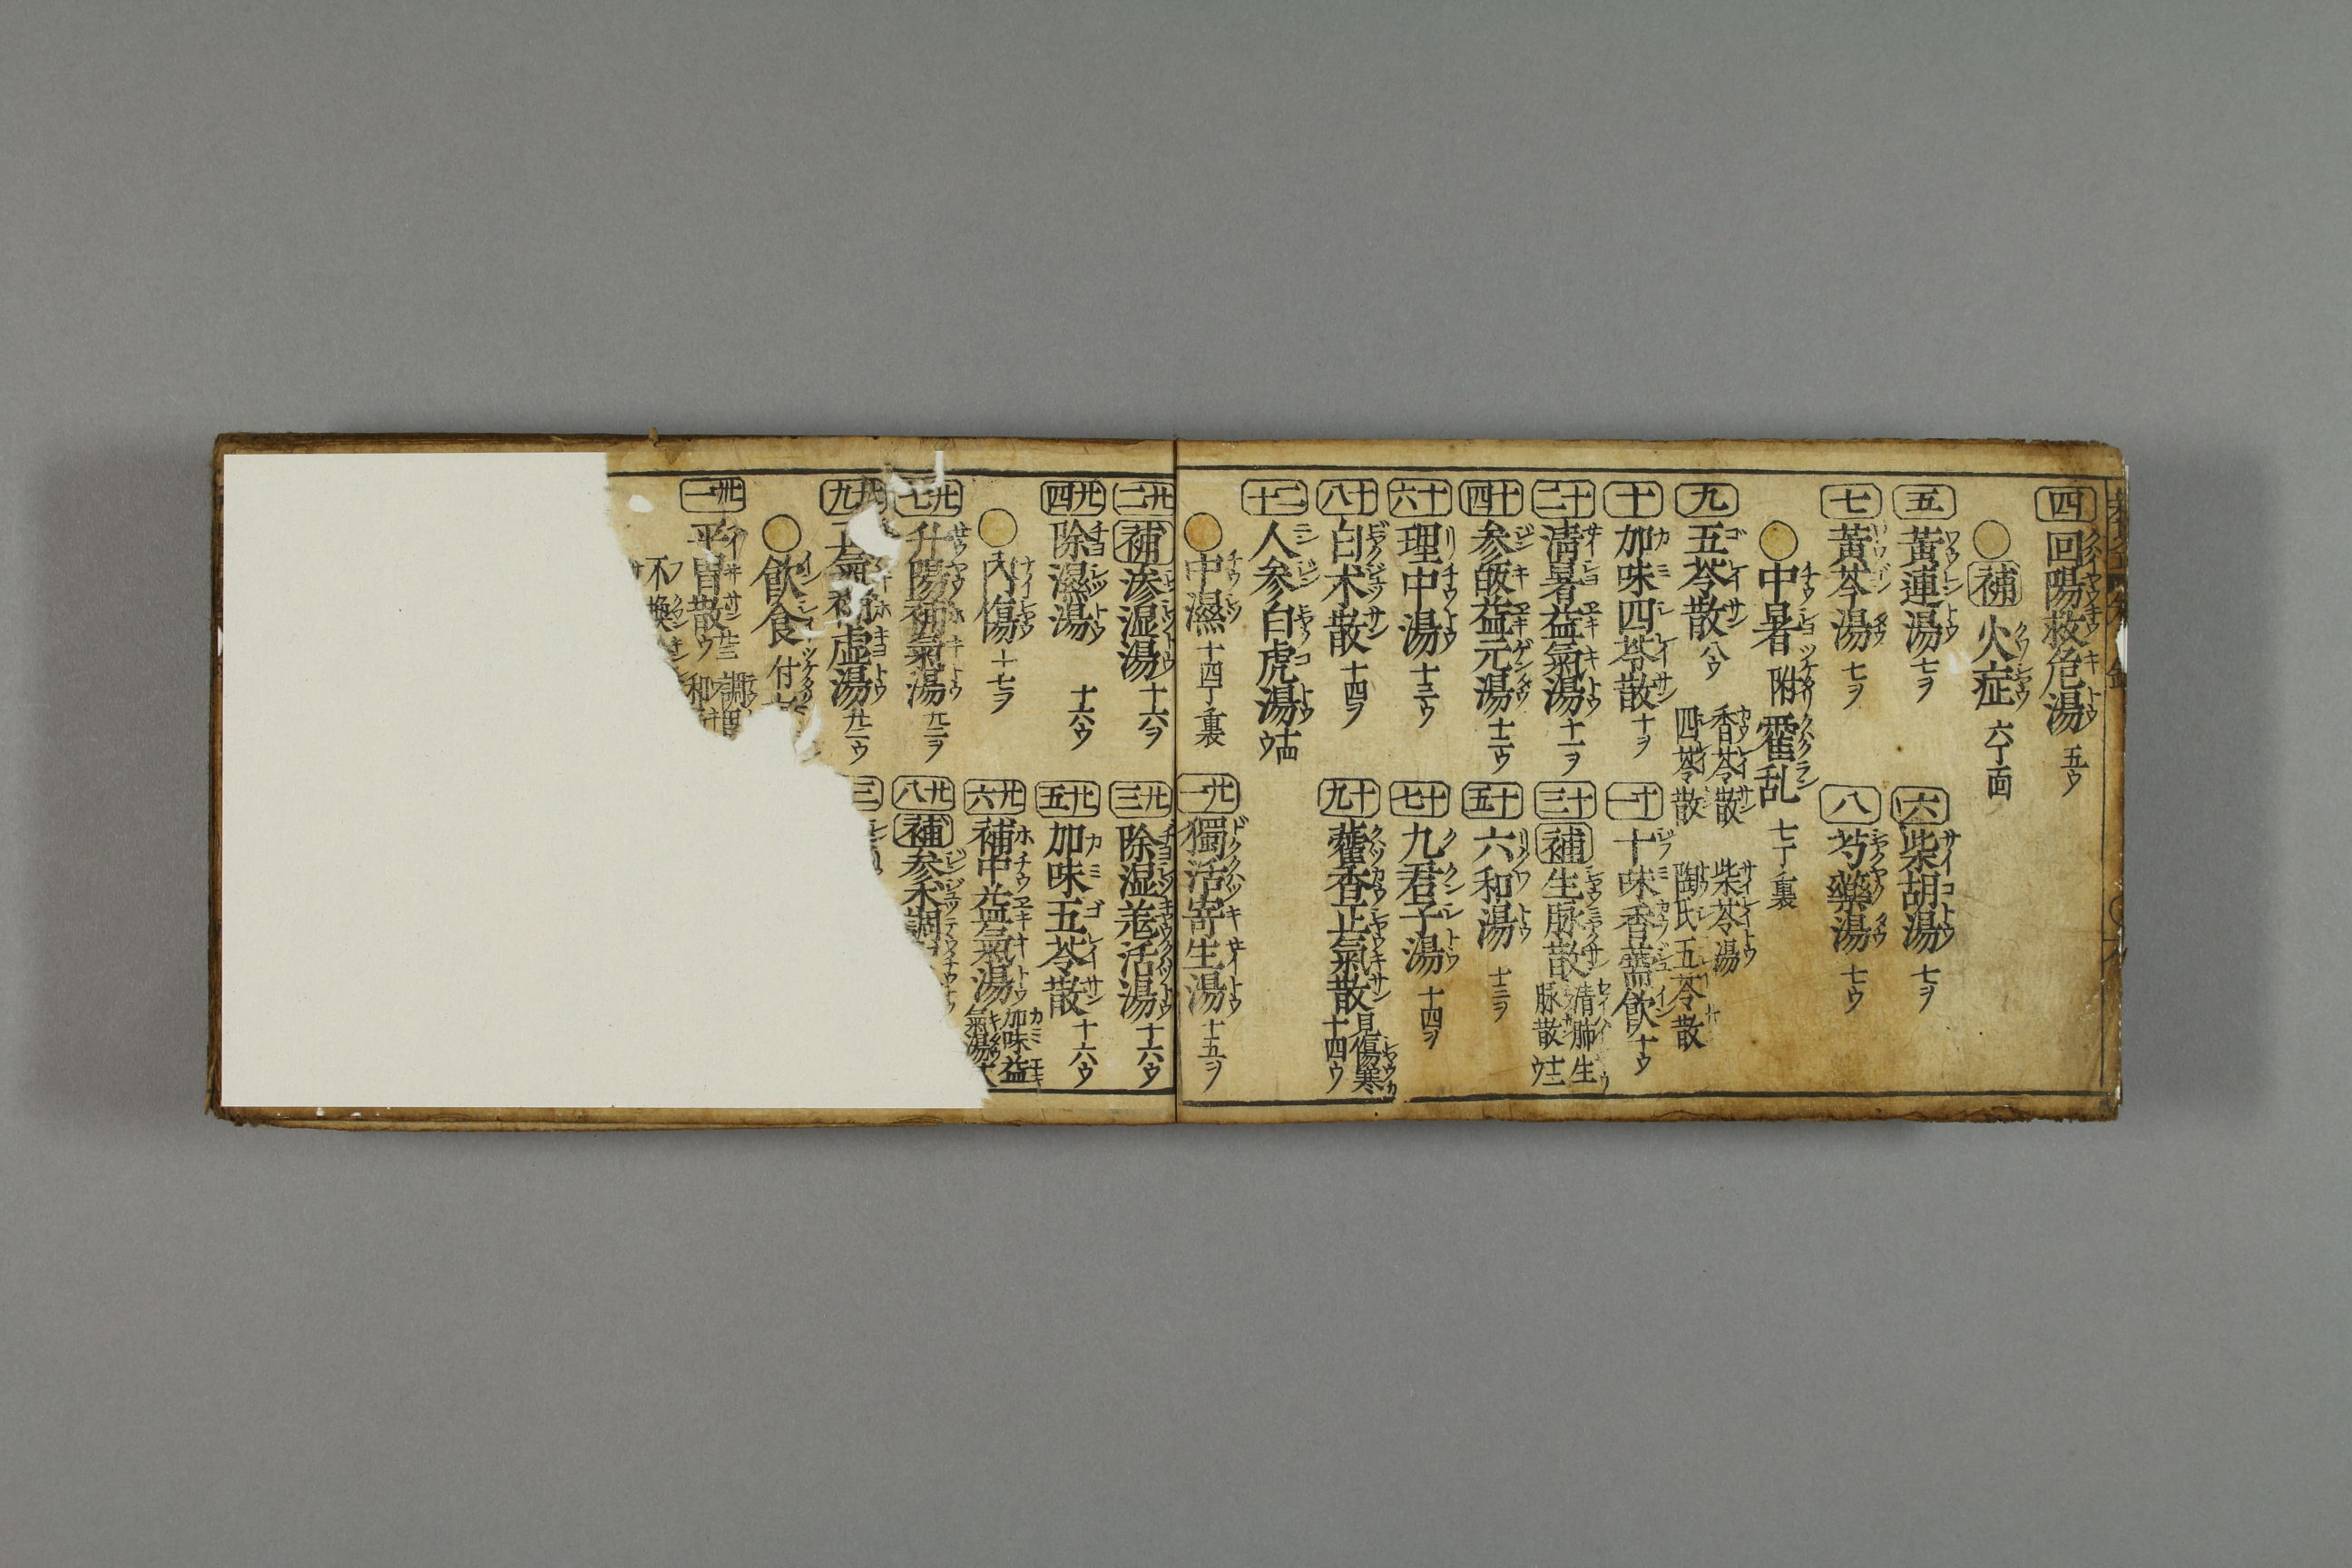 四 回陽救危湯 五ウ
補 火症 六丁面
五 黃連湯 七ヲ
六 柴胡湯 七ヲ
七 黃芩湯 七ヲ
八 芍藥湯 七ウ
中暑 附 霍乱 七丁裏
九 五苓散 八ウ 香苓散 四苓散 柴苓湯 陶氏五苓散
十 加味四苓散 十ヲ
十一 十味香薷飲 十ウ
十二 淸暑益氣湯 十一ヲ
十三 補 生脉散 清肺生脉散 十二ウ
十四 参𫋇益元湯 十二ウ
十五 六和湯 十三ヲ
十六 理中湯 十三ウ
十七 九君子湯 十四ヲ
十八 白朮散 十四ヲ
十九 藿香正氣散 見傷寒 十四ウ
二十 人参白虎湯 十四ウ
中濕 十四丁裏
廿一 獨活寄生湯 十五ヲ
廿二 補 滲湿湯 十六ヲ
廿三 除湿羌活湯 十六ウ
廿四 除濕湯 十六ウ
廿五 加味五苓散 十六ウ
内傷 十七ヲ
廿六 補中益氣湯 加味益氣湯
廿七 升陽補氣湯 廿二ヲ
廿八 補 参朮調
九 氣補虚湯 廿二ウ
三
飲食 付
卅一 平胃散 廿三ウ 調 和
不換